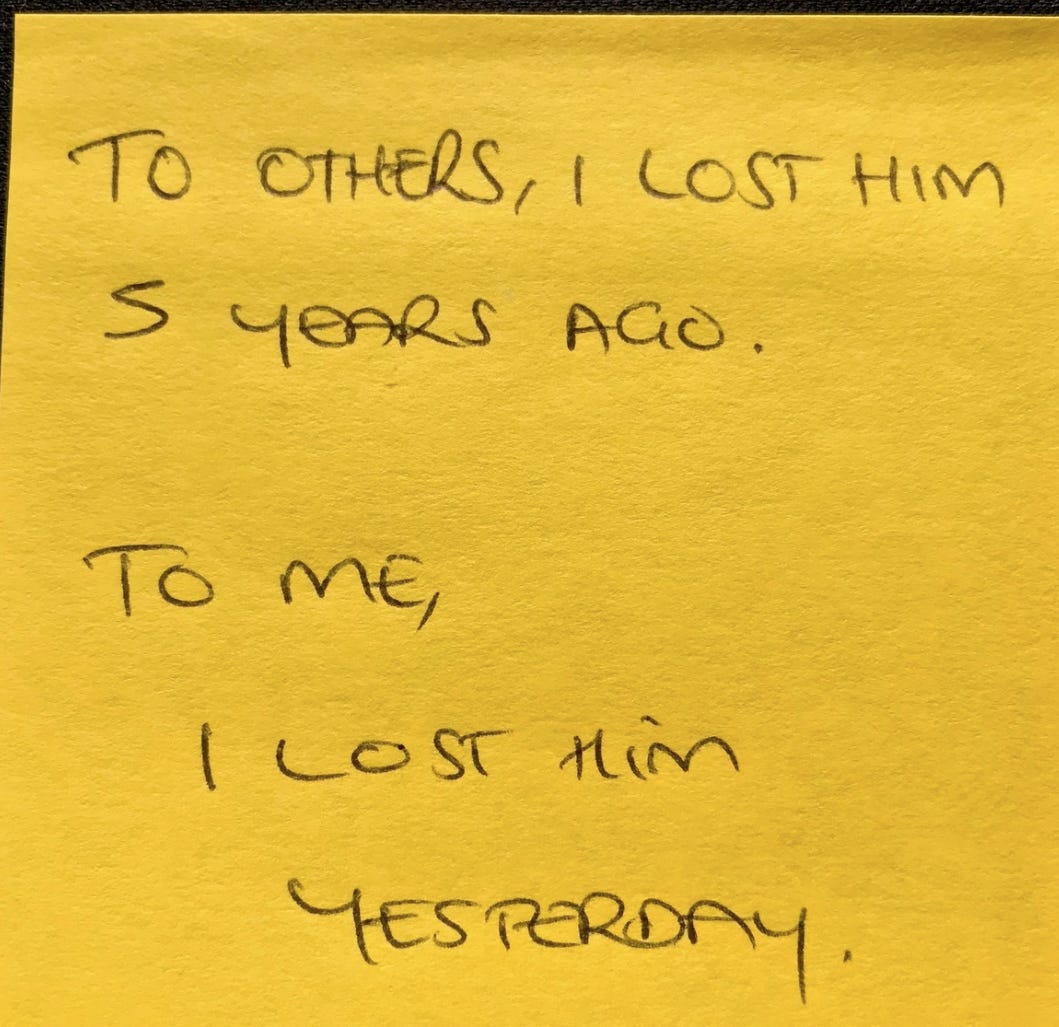 TO OTHERS, I LOST HIM
5 YEARS AGO.
TO ME,
I LOST HiM
YESTERDAY.